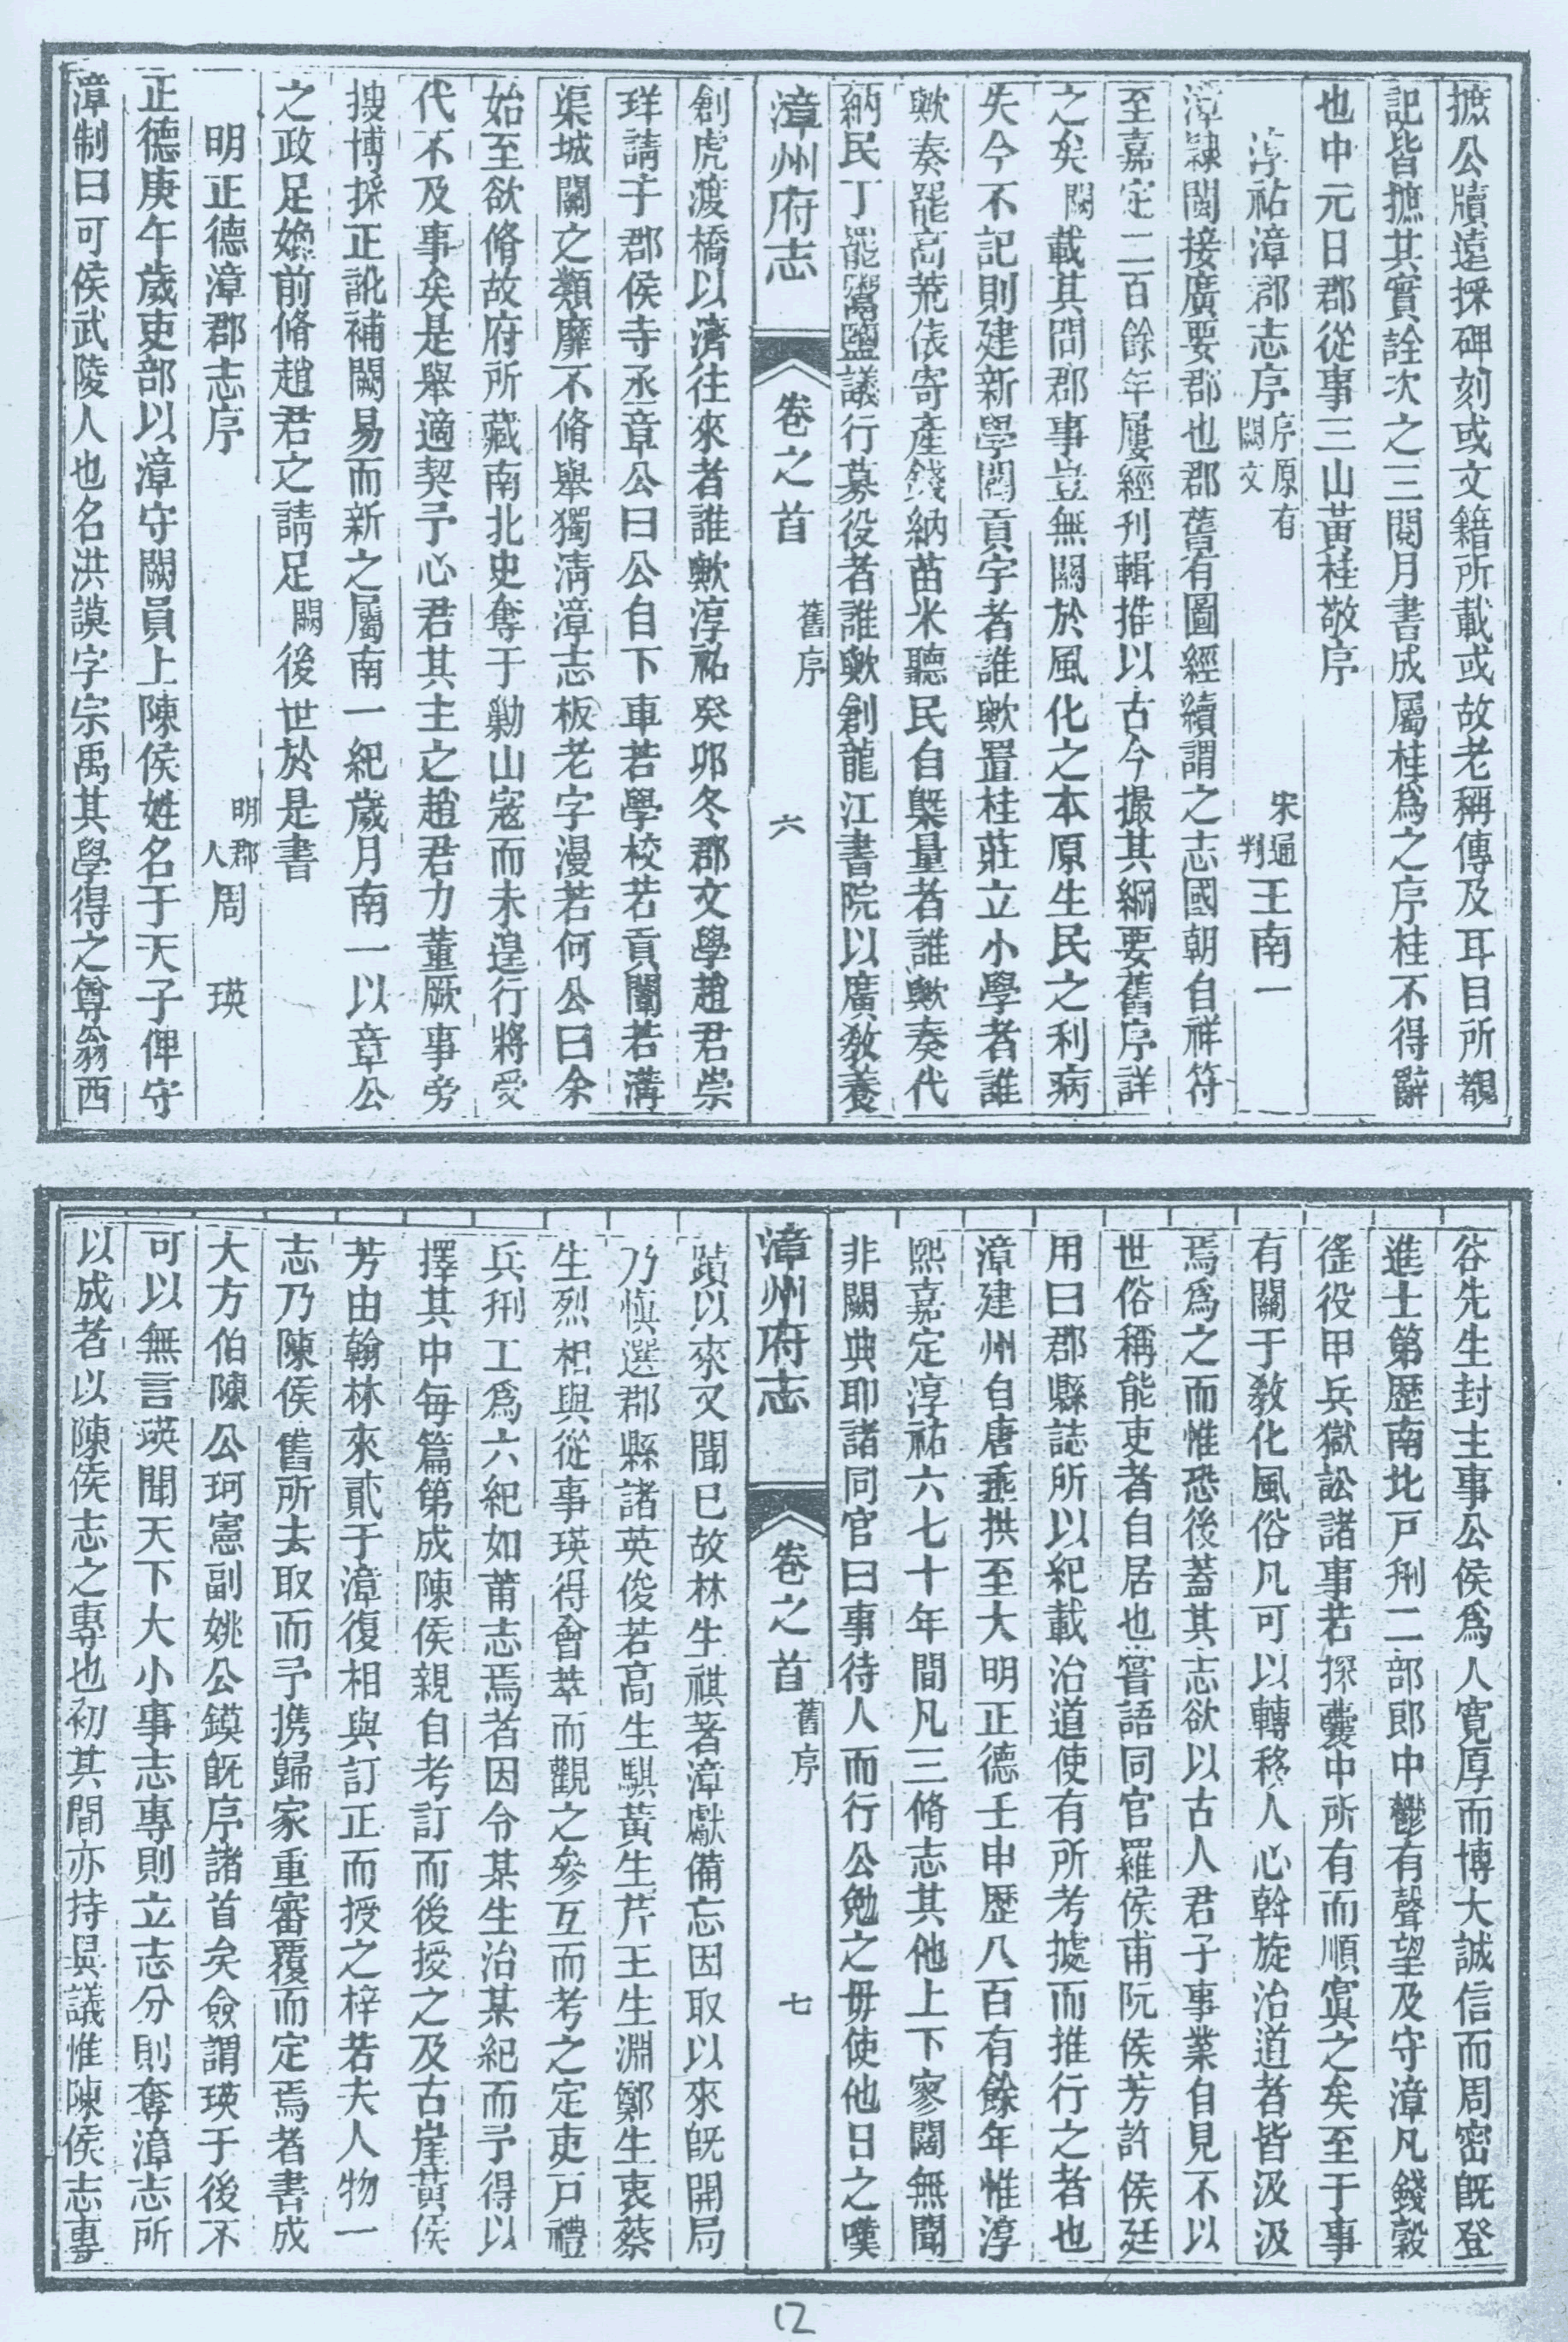 摭公牘遠採碑刻或文籍所載或故老稱傳及耳目所覩
記皆摭其實詮次之三閱月書成屬桂爲之序桂不得辭
也中元日郡從事三山黃桂敬序
淳祐漳郡志序序原有闕文 宋通判王南一
漳隸閩接廣要郡也郡舊有圖經續謂之志國朝自祥符
至嘉定二百餘年屢經刋輯推以古今撮其綱要舊序詳
之矣闕載其問郡事豈無關於風化之本原生民之利病
失今不記則建新學闢貢宇者誰歟置桂莊立小學者誰
歟奏罷高荒俵寄產錢納苗米聽民自槩量者誰歟奏代
納民丁罷鬻鹽議行募役者誰歟創龍江書院以廣教養
漳州府志 卷之首 舊序 六
創虎渡橋以濟往來者誰歟淳祐癸卯冬郡文學趙君崇
玶請于郡侯寺丞章公曰公自下車若學校若貢闈若溝
渠城闕之類靡不脩舉獨淸漳志板老字漫若何公曰余
始至欲脩故府所藏南北史奪于勦山寇而未遑行將受
代不及事矣是舉適契予心君其主之趙君力董厥事旁
搜博採正訛補闕易而新之屬南一紀歲月南一以章公
之政足媲前脩趙君之請足闕後世於是書
明正德漳郡志序 明郡人周 瑛
正德庚午歲吏部以漳守闕員上陳侯姓名于天子俾守
漳制曰可侯武陵人也名洪謨字宗禹其學得之尊翁西
谷先生封主事公侯爲人寬厚而博大誠信而周密旣登
進士第歷南北戸刑二部郎中鬱有聲望及守漳凡錢糓
徭役甲兵獄訟諸事若探囊中所有而順寘之矣至于事
有關于敎化風俗凡可以轉移人心斡旋治道者皆汲汲
焉爲之而惟恐後蓋其志欲以古人君子事業自見不以
世俗稱能吏者自居也嘗語同官羅侯甫阮侯芳許侯廷
用曰郡縣誌所以紀載治道使有所考據而推行之者也
漳建州自唐垂拱至大明正德壬申歷八百有餘年惟淳
熙嘉定淳祐六七十年間凡三脩志其他上下寥濶無聞
非闕典耶諸同官曰事待人而行公勉之毋使他日之嘆
漳州府志 卷之首 舊序 七
蹟以來又聞已故林生祺著漳獻備忘因取以來旣開局
乃愼選郡縣諸英俊若高生騏黃生芹王生淵鄭生衷蔡
生烈相與從事瑛得會萃而觀之參互而考之定吏戸禮
兵刑工爲六紀如莆志焉者因令某生治某紀而予得以
擇其中每篇第成陳侯親自考訂而後授之及古崖黃侯
芳由翰林來貳于漳復相與訂正而授之梓若夫人物一
志乃陳侯舊所去取而予携歸家重審覆而定焉者書成
大方伯陳公珂憲副姚公鏌旣序諸首矣僉謂瑛于後不
可以無言瑛聞天下大小事志專則立志分則奪漳志所
以成者以陳侯志之專也初其間亦持異議惟陳侯志專
12